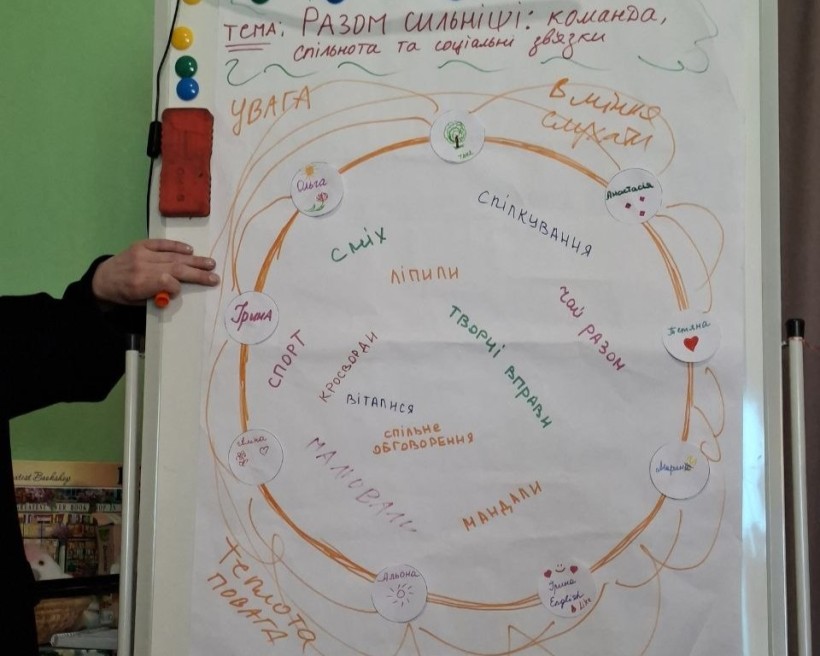 ТЕМА: РАЗОМ СИЛЬНІШІ: КОМАНДА,
СПІЛЬНОТА ТА СОЦІАЛЬНІ ЗВЯЗКИ
УВАГА
ВМІННЯ
СЛУХАТИ
Ольга
Анастасія
СПІЛКУВАННЯ
СМІХ
ЛІПИЛИ
ЧАЙ РАЗОМ
Ірина
Тетяна
СПОРТ
КРОСВОРДИ
ТВОРЧІ ВПРАВИ
ВІТАЛИСЯ
СПІЛЬНЕ
ОБГОВОРЕННЯ
МАЛЮВАЛИ
МАНДАЛИ
Альона
Ірина
English
ТЕПЛОТА
ПОВАГА